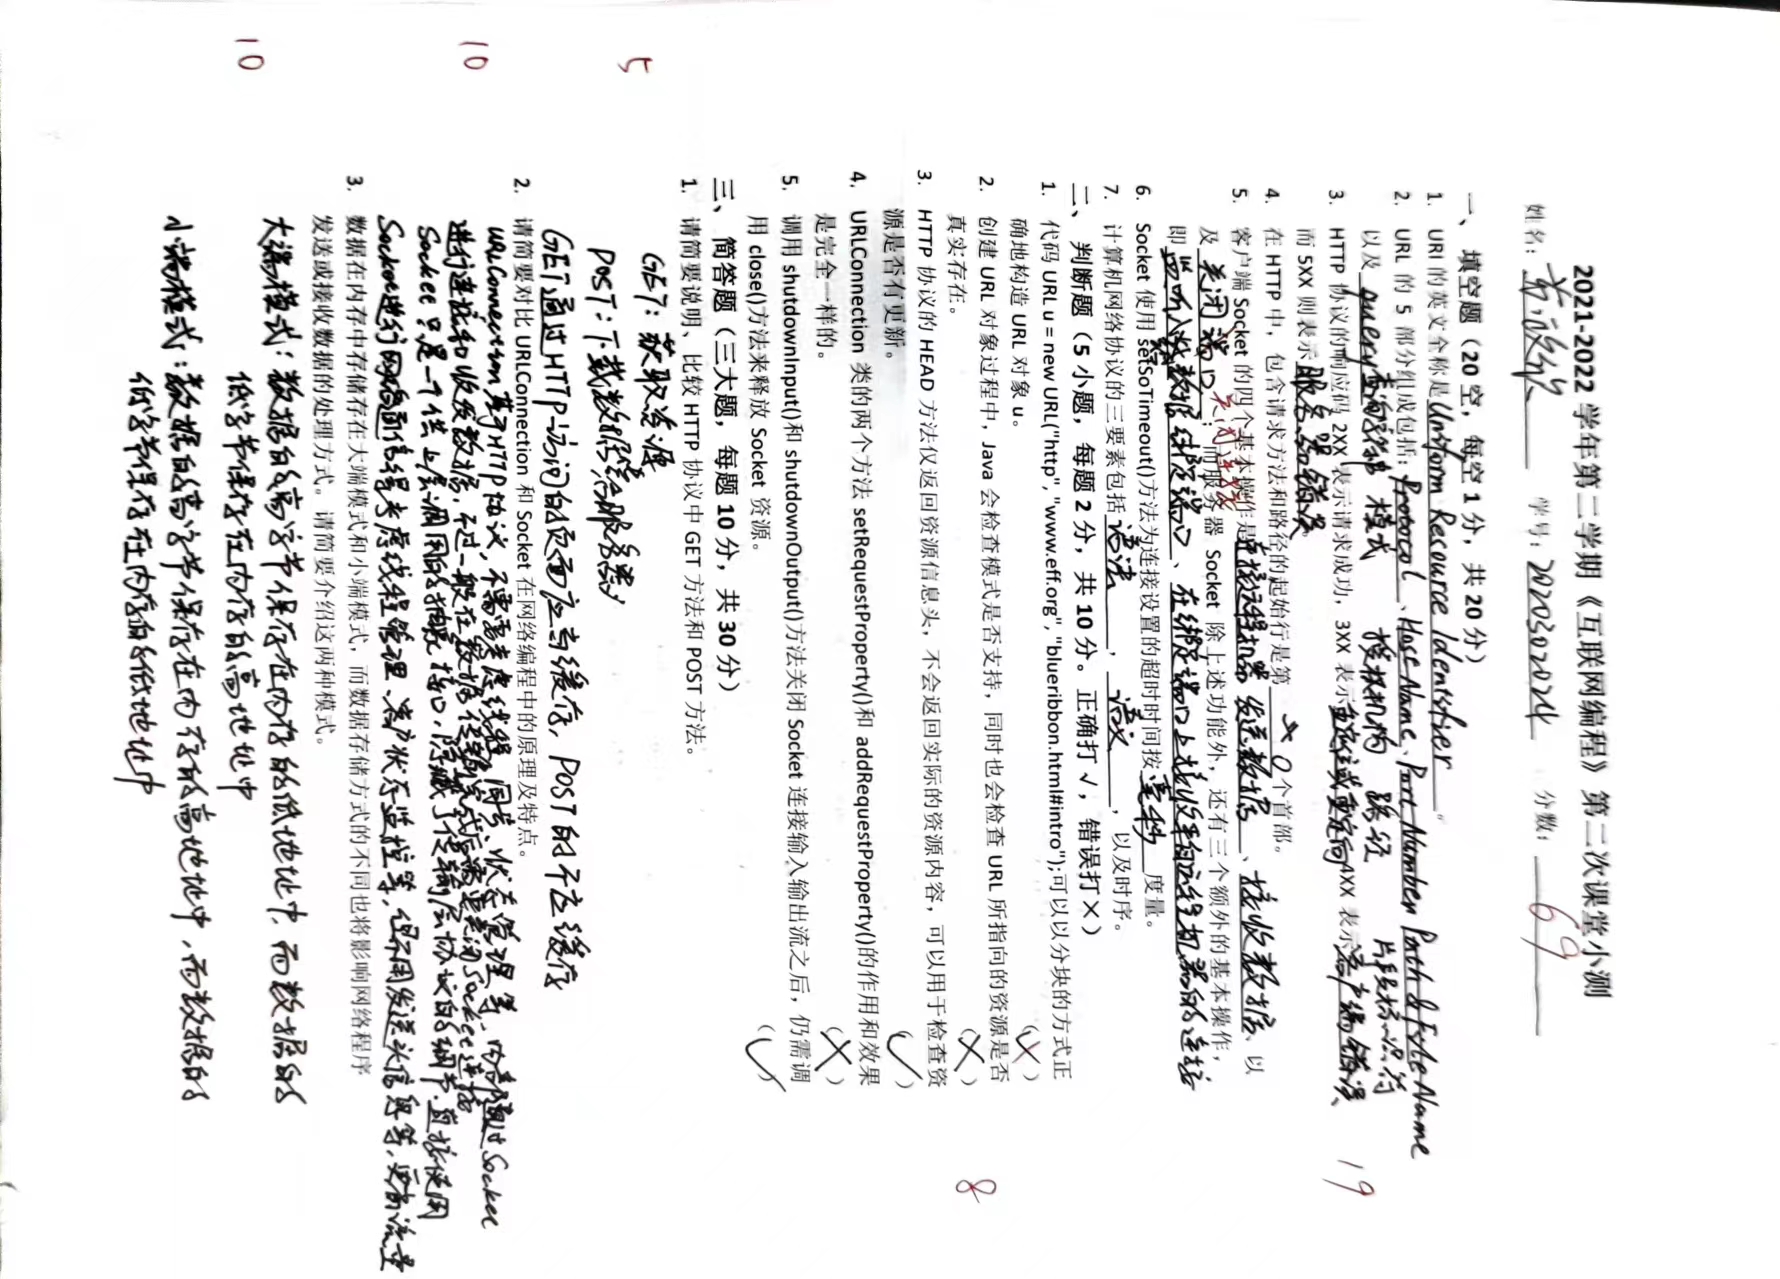 2021-2022 学年第二学期《互联网编程》第二次课堂小测
姓名： 学号：220302024 分数： 69
一、填空题（20 空，每空 1 分，共 20 分）
1. URI 的英文全称是Uniform Recource Identifier
2. URL 的 5 部分组成包括：Protocol、Host Name、Port Number Path & File Name
以及 query查询字符 模式 授权机构 路径 片段标识符
3. HTTP 协议的响应码 2XX 表示请求成功，3XX 表示重定向4XX 表示客户端错误、
而 5XX 则表示服务器错误
4. 在 HTTP 中，包含请求方法和路径的起始行是第 0 个首部。
5. 客户端 Socket 的四个基本操作是连接远程机器 发送数据、接收数据、以
及 关闭端口，关闭连接 而服务器 Socket 除上述功能外，还有三个额外的基本操作，
即 监听入站数据 绑定端口、在绑定端口上接收来自远程机器的连接
6. Socket 使用 setSoTimeout()方法为连接设置的超时时间按毫秒度量。
7. 计算机网络协议的三要素包括 语法，语义，以及时序。
二、判断题（5 小题，每题 2 分，共 10 分。正确打 √，错误打 ×）
1. 代码 URL u = new URL("http", "www.eff.org", "blueribbon.html#intro");可以以分块的方式正
确地构造 URL 对象 u。 （×）
2. 创建 URL 对象过程中，Java 会检查模式是否支持，同时也会检查 URL 所指向的资源是否
真实存在。 （×）
3. HTTP 协议的 HEAD 方法仅返回资源信息头，不会返回实际的资源内容，可以用于检查资
源是否有更新。 （√）
4. URLConnection 类的两个方法 setRequestProperty()和 addRequestProperty()的作用和效果
是完全一样的。 （×）
5. 调用 shutdownInput()和 shutdownOutput()方法关闭 Socket 连接输入输出流之后，仍需调
用 close()方法来释放 Socket 资源。 （√）
19
8
三、简答题（三大题，每题 10 分，共 30 分）
1. 请简要说明、比较 HTTP 协议中 GET 方法和 POST 方法。
5
GET：获取资源
POST：下载数据给服务器
GET通过HTTP访问的页面应当缓存，POST的不应缓存
2. 请简要对比 URLConnection 和 Socket 在网络编程中的原理及特点。
10
URLConnection基于HTTP协议，不需要考虑线程、同步、状态管理等，内部通过Socket
进行连接和收发数据，不过一般在数据传输完成后需要关闭Socket连接
Socket只是一个供上层调用的抽象接口，隐藏了传输层协议的细节 直接使用
Socket进行网络通信得考虑线程管理、客户状态监控等，但不用发送头信息等，更省流量
3. 数据在内存中存储存在大端模式和小端模式，而数据存储方式的不同也将影响网络程序
发送或接收数据的处理方式。请简要介绍这两种模式。
10
大端模式：数据的高字节保存在内存的低地址中，而数据的
低字节保存在内存的高地址中
小端模式：数据的高字节保存在内存的高地址中，而数据的
低字节保存在内存的低地址中